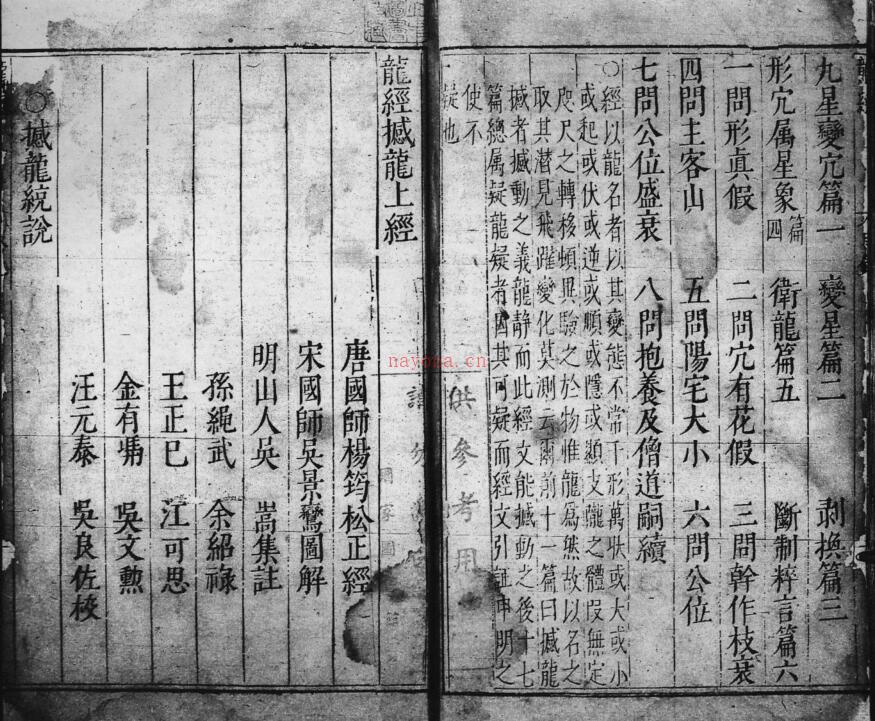 九星變穴篇一 變星篇二 剥換篇三
形穴属星象篇四 衛龍篇五 斷制粹言篇六
一問形真假 二問穴有花假 三問幹作枝衰
四問主客山 五問陽宅大小 六問公位
七問公位盛衰 八問抱養及僧道嗣續
○經以龍名者以其變態不常千形萬狀或大或小
或起或伏或逆或順或隱或顯支壠之體段無定
咫尺之轉移頓異驗之於物惟龍為然故以名之
取其潜見飛躍變化莫測云爾前十一篇曰撼龍
撼者撼動之義龍静而此經文能撼動之後十七
篇總属疑龍疑者因其可疑而經文引証申明之
使不疑也
供參考用
龍經撼龍上經
唐國師楊筠松正經
宋國師吳景鸞圖解
明山人吳 嵩集註
孫繩武 余紹祿
王正巳 江可思
金有𤩰 吳文勲
汪元泰 吳良佐校
○撼龍統說
nayona.cn